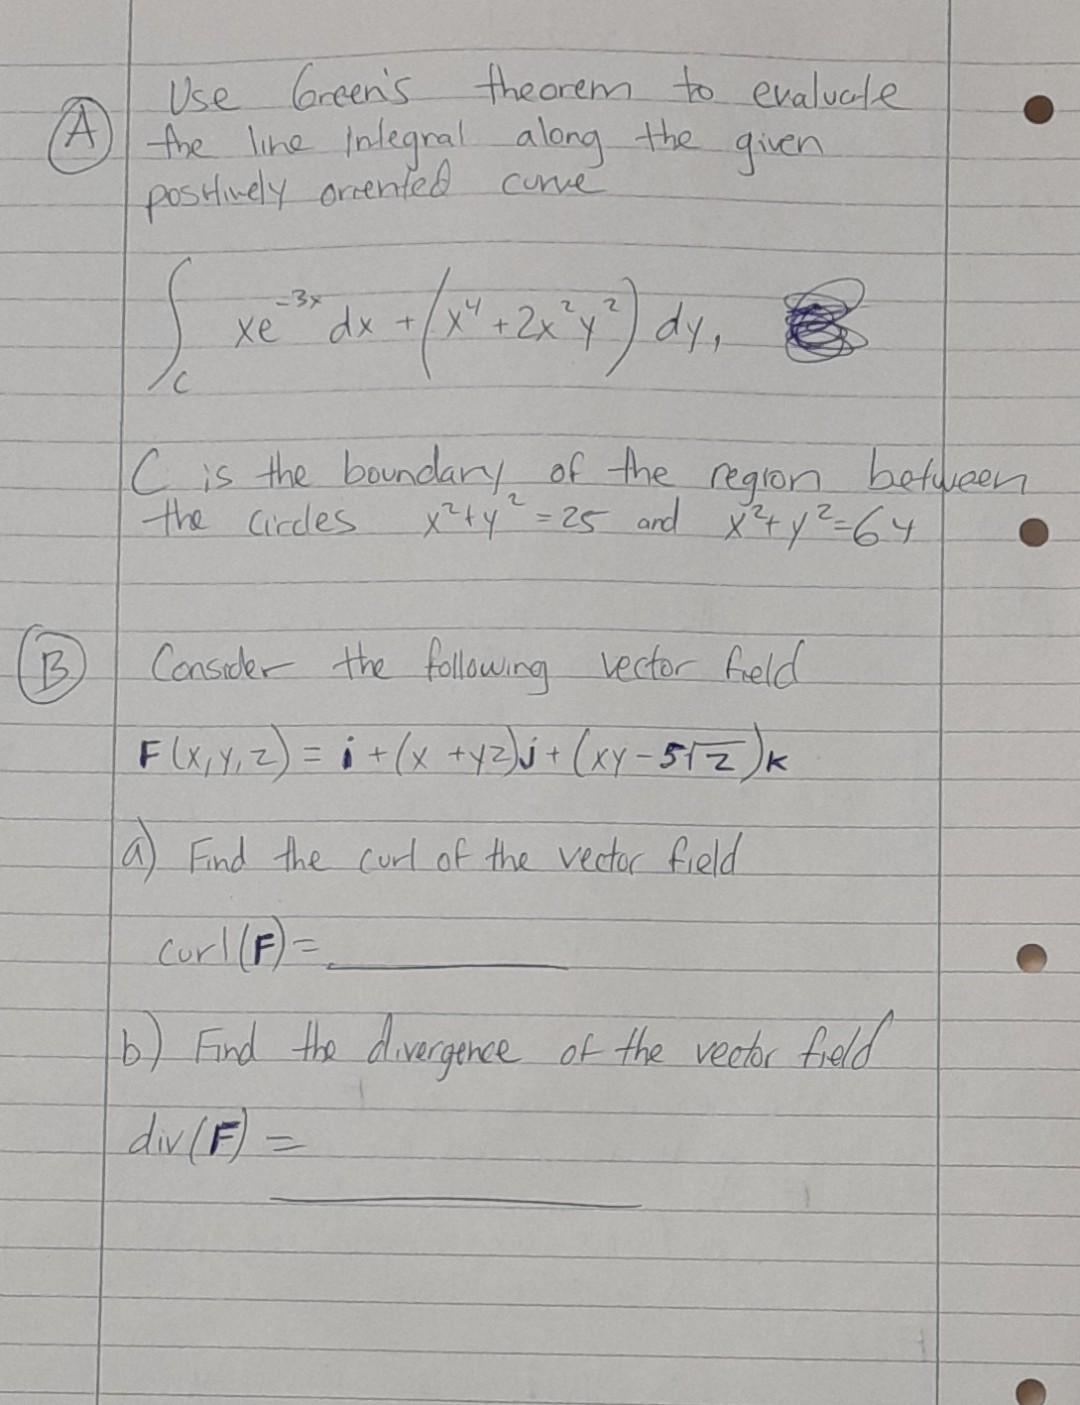 A
Use Green's theorem to evaluate
the line Integral along the given
positively oriented curve
∫_C xe^{-3x} dx + (x^4 + 2x^2y^2) dy,
C is the boundary of the region between
the circles x^2+y^2=25 and x^2+y^2=64
B
Consider the following vector field
F(x,y,z) = i + (x + yz)j + (xy - 5√z)k
a) Find the curl of the vector field
curl(F) =
b) Find the divergence of the vector field
div(F) =